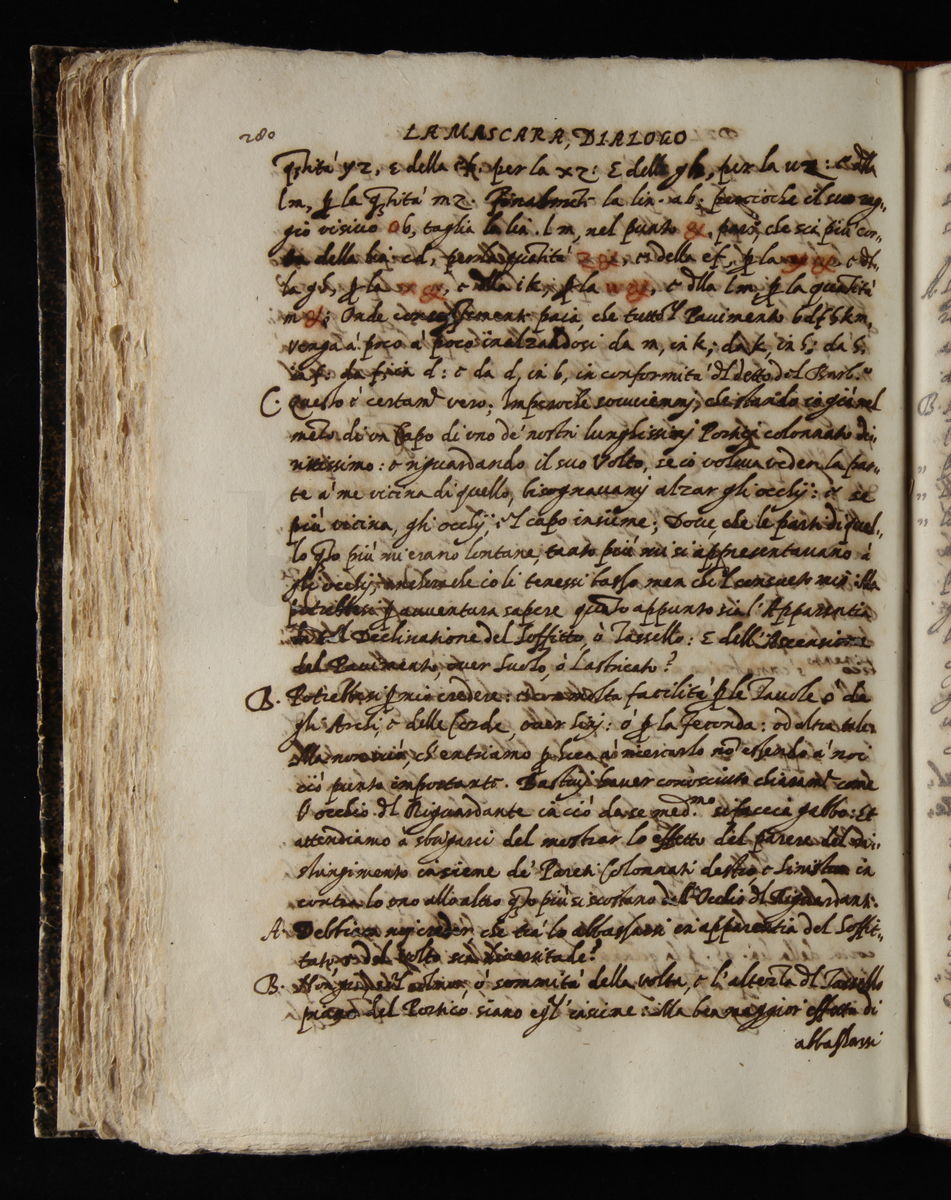 280
LA MASCARA, DIALOGO
q̃tità yz, e della ik. per la xz: E della gh, per la uz: e dlla
lm, ꝑ la q̃tità mz. Finalmẽte la lin. ab; percioche il suo rag-
gio visivo ob, taglia la lin. lm, nel punto &, pare, che sia più cor-
ta della lin. cd, per la quantità z&, e della ef, ꝑ la y&, e dl-
la gh, ꝑ la x&, e dlla ik, ꝑ la u&, e dlla lm ꝑ la quantità
m &; Onde paia, che tutto'l Pavimento bdfhkm,
venga à poco à poco inalzandosi da m, in k; da k, in h; da h,
in f: da f, in d: e da d, in b, in conformità dl detto del Barb.º
C. Questo è certamẽ vero; Imperoche sovviemmj, che stando io già nel
mezo di un Capo di uno de' nostri lunghissimj Portici colonnato di-
rittissimo: e riguardando il suo Volto, se io voleva veder la par-
te à me vicina di quello, bisognavamj alzar gli occhij: e se
più vicina, gli occhij, e'l capo insieme; Dove, che le parti di quel-
lo q̃to più mi erano lontane, tanto più mi si appresentavano à
gli occhij, anchorche io li tenessi basso men che'l consueto mio: Ma
potrebbesi ꝑ avventura sapere quãto appunto sia l'Apparentia
Declinatione del Soffitto, ò Tassello: E dell'Ascensione
del Pavimento, over Suolo, ò Lastricato?
B. Potrebbesi ꝑ mio credere: e con molta facilità ꝑ le Tavole ò de
gli Archi, e delle Corde, over Sini: ò ꝑ la Feconda: od altra tale.
Ma non già, ch'entriamo ꝑ hora à ricercarlo nõ essendo à noi
ciò punto importante. Bastivj haver conosciuto chiaramẽ come
l'occhio dl Riguardante in ciò da se med.mo si faccia gabbo: Et
attendiamo à sbrigarci del mostrar lo effetto del parere del ri-
stringimento insieme de' Pareti Colonnati destro e Sinistro in
contra lo uno allo altro q̃to più si scostano dall'Occhio dl Riguardante.
A. Debbiam noj creder che trà lo abbassarsi in apparentia del Soffit-
tato, e del Volto sia diversitade?
B. colmo, ò sommità della volta, e l'altezza dl Tassello
piano del Portico siano insieme: Ma ben maggior effetto di
abbassarsi